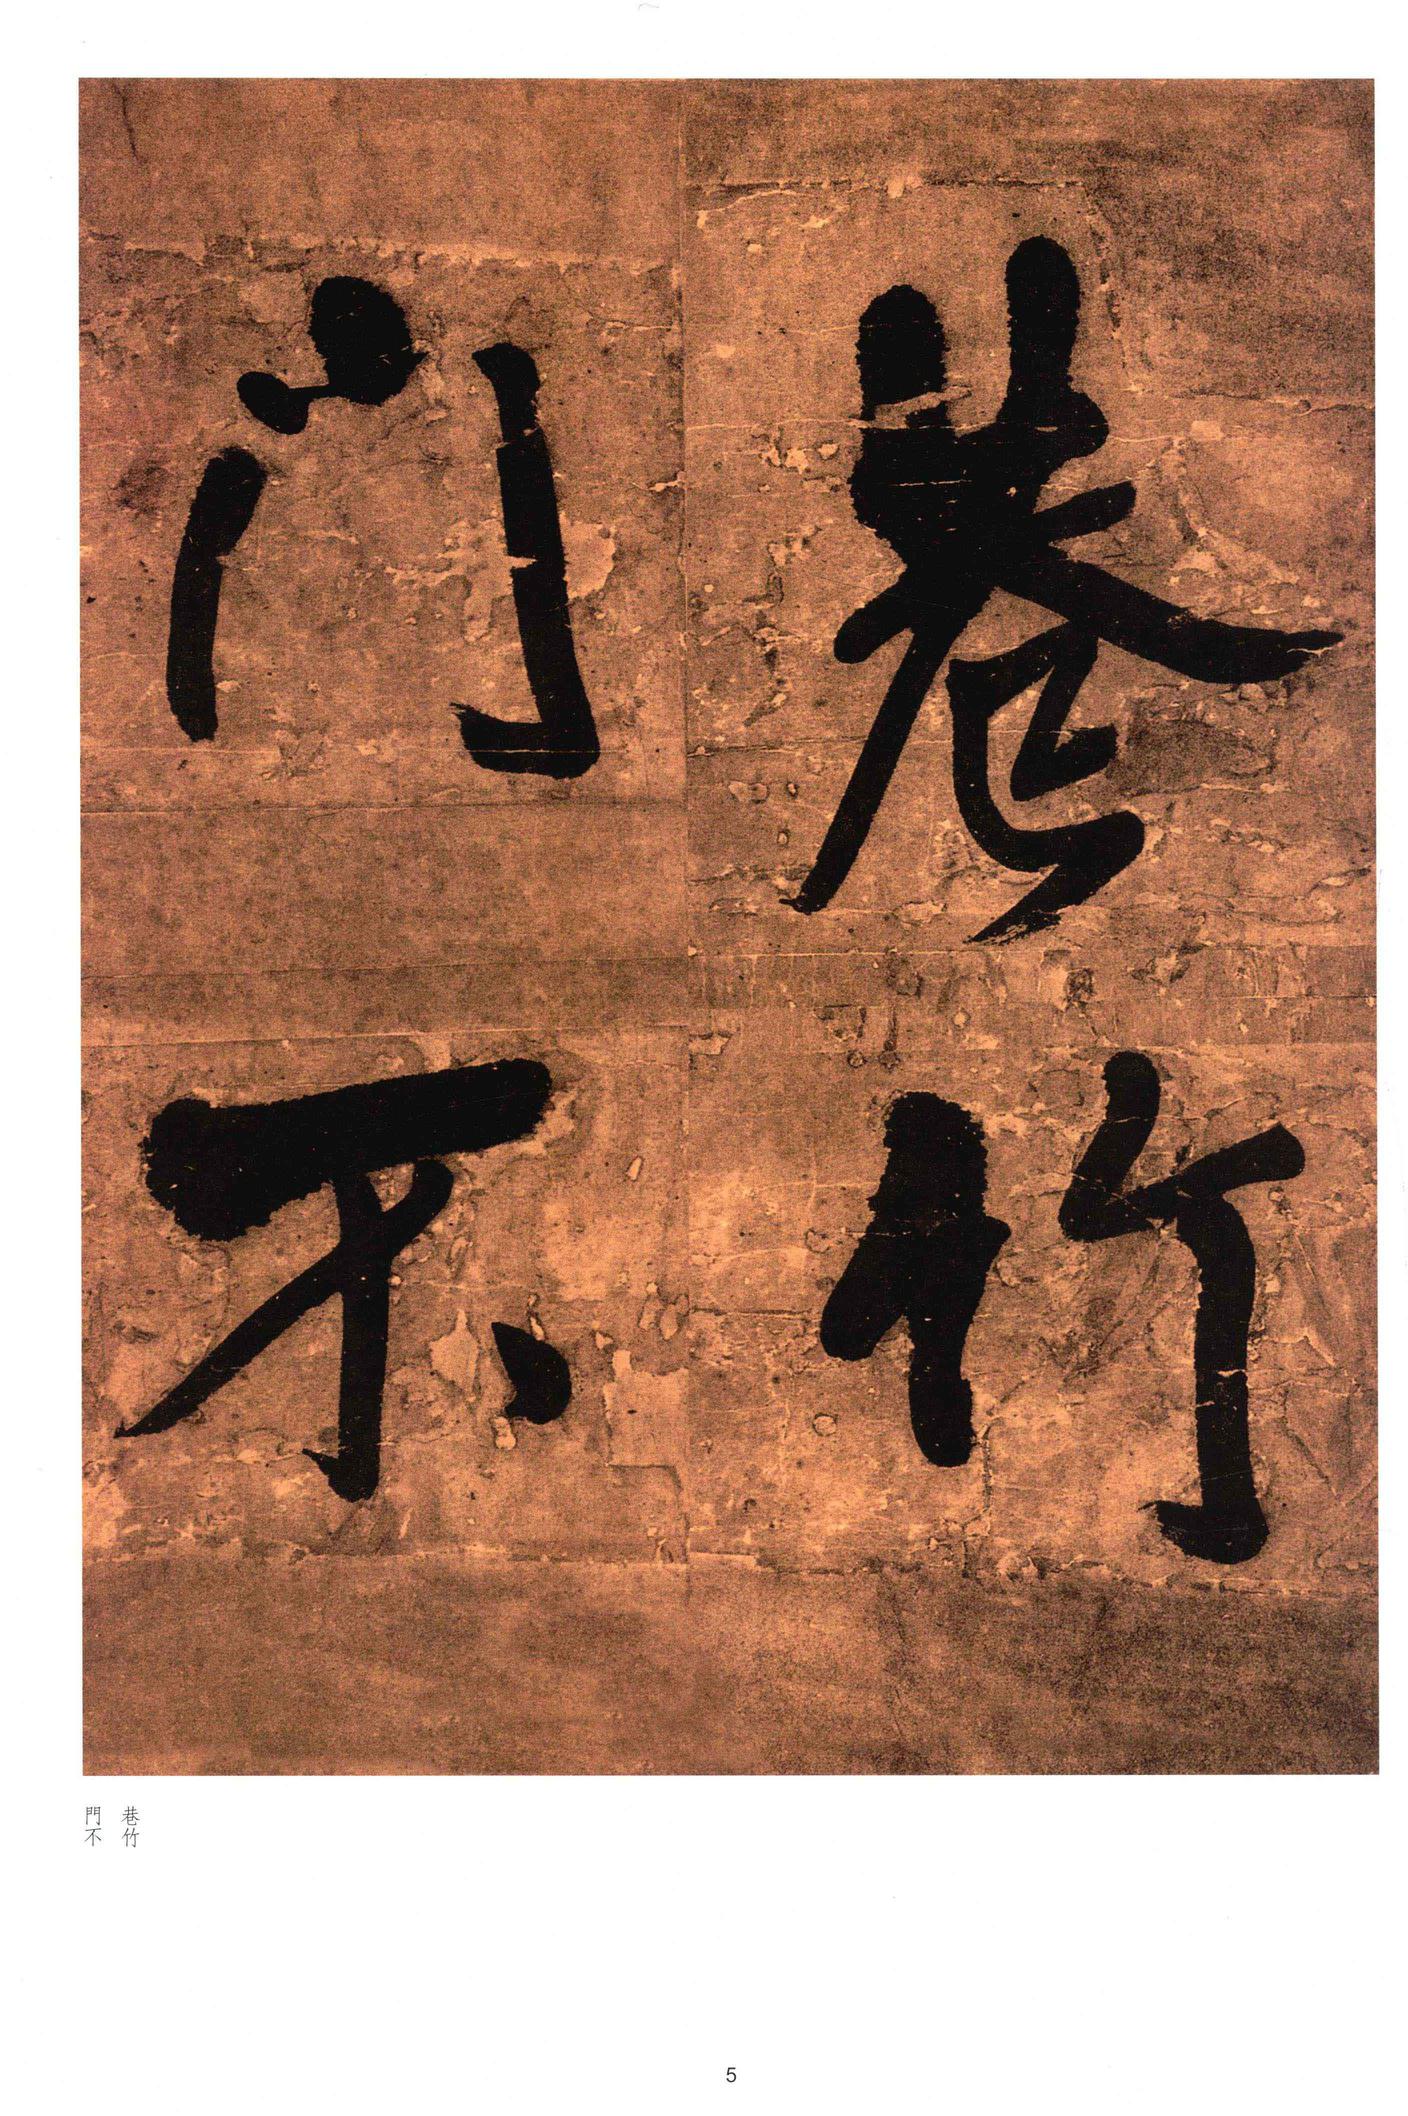 巷竹
门不
巷竹
門不
5